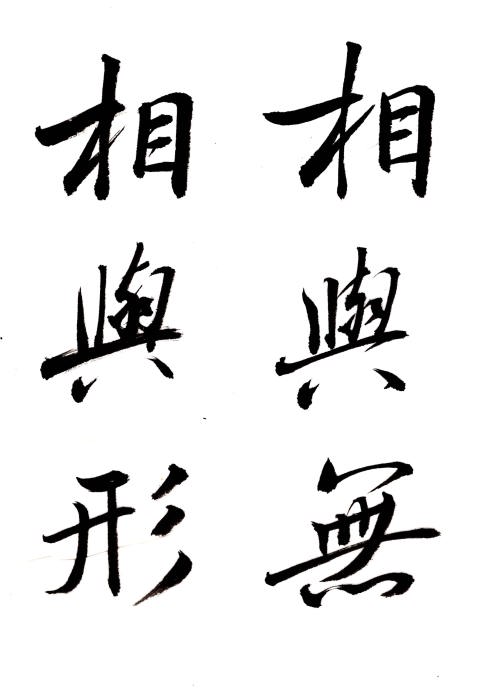 相與無
相與形